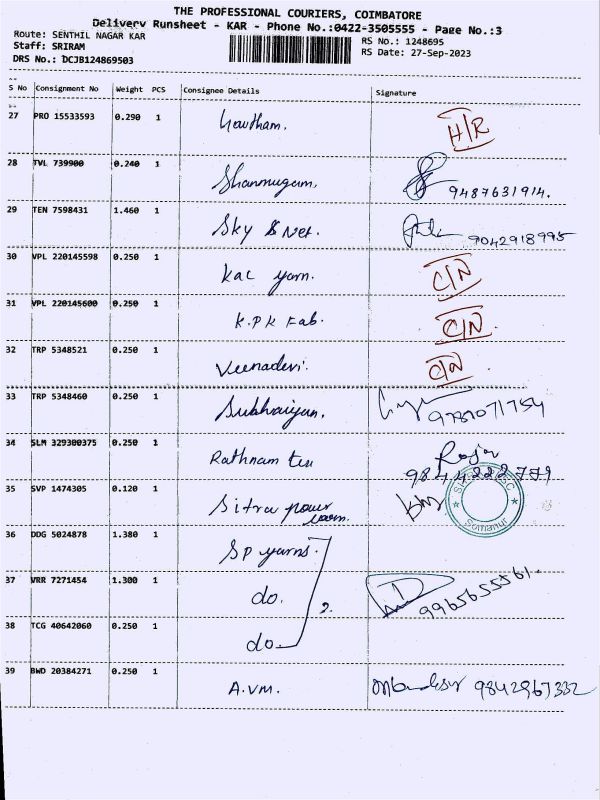 THE PROFESSIONAL COURIERS, COIMBATORE
Delivery Runsheet - KAR - Phone No.:0422-3505555 - Page No.:3
Route: SENTHIL NAGAR KAR
Staff: SRIRAM
DRS No.: DCJB124869503
RS No.: 1248695
RS Date: 27-Sep-2023
S No Consignment No Weight PCS Consignee Details Signature
27 PRO 15533593 0.290 1 Gowtham. H/R
28 TVL 739900 0.240 1 Shanmugam. 9487631914.
29 TEN 7598431 1.460 1 Sky & Net. 9042918995
30 VPL 220145598 0.250 1 Kac yarn. C/N
31 VPL 220145600 0.250 1 K.P.K Fab. C/N
32 TRP 5348521 0.250 1 Veenadevi. C/N
33 TRP 5348460 0.250 1 Subhaiyan. 9787071754
34 SLM 329300375 0.250 1 Rathnam tex Raja
9844222779
35 SVP 1474305 0.120 1 Sitra power
loom. Somanur
36 DDG 5024878 1.380 1 SP yarns.
37 VRR 7271454 1.300 1 do. 9965655561.
38 TCG 40642060 0.250 1 do
39 BWD 20384271 0.250 1 A.VM. 9842967332